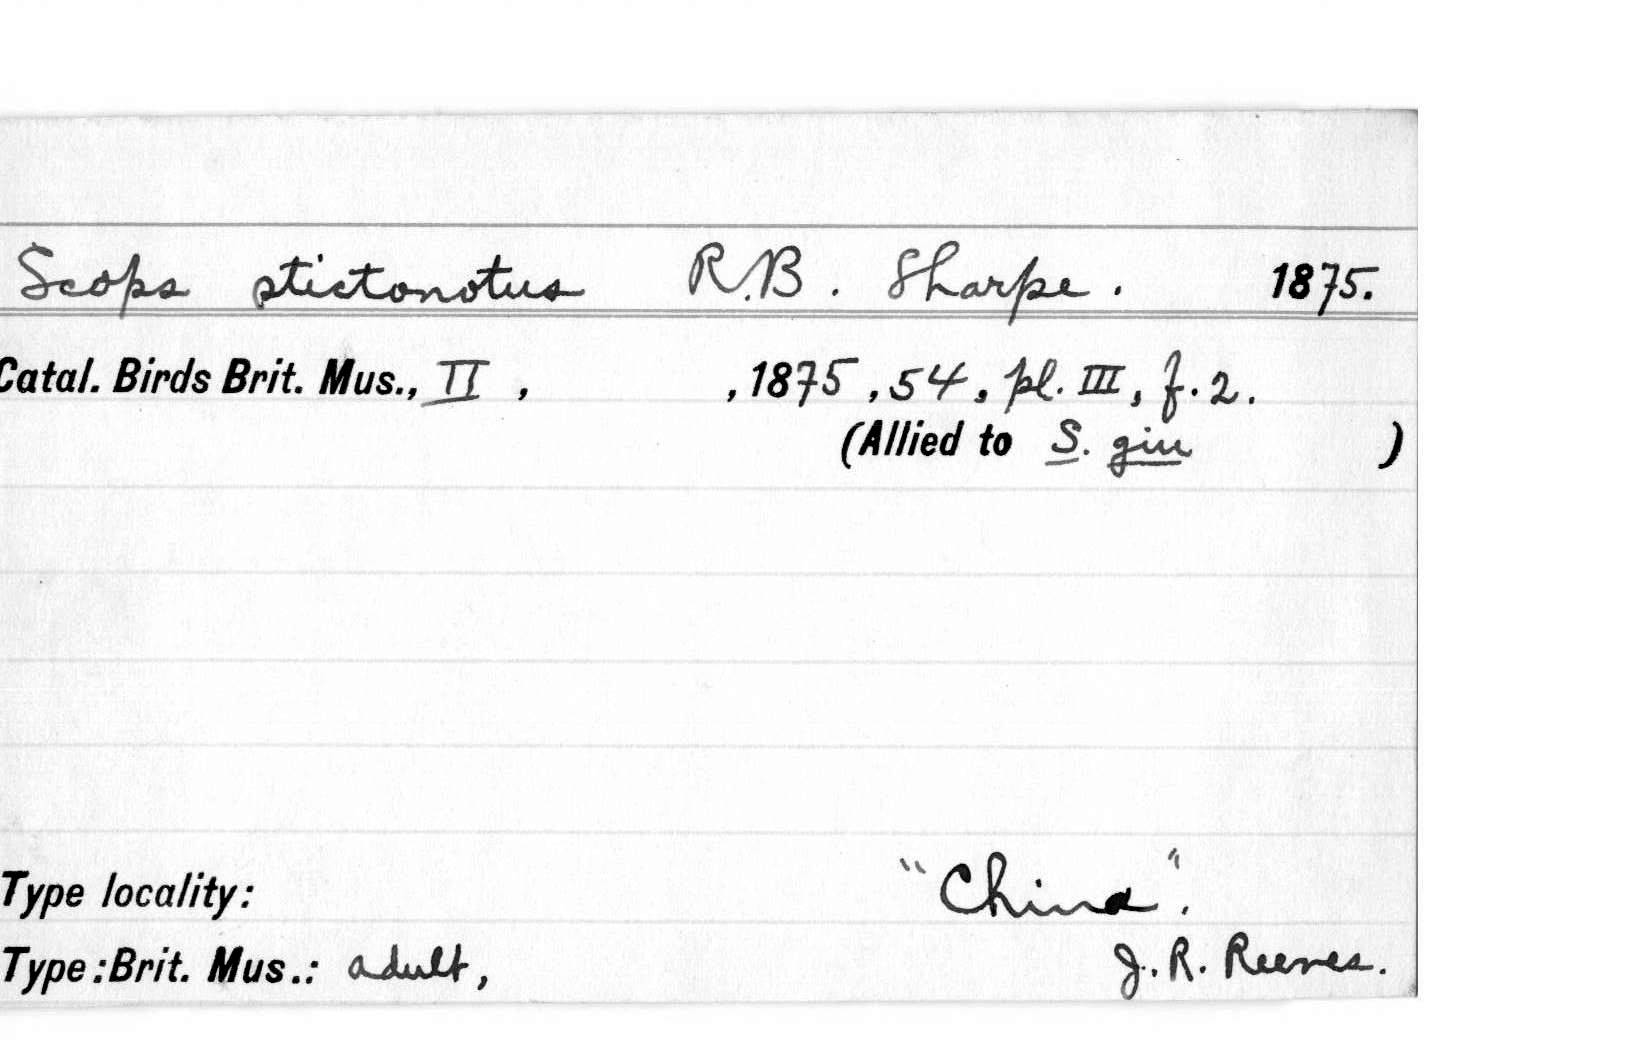 Scops stictonotus R.B. Sharpe. 1875.
Catal. Birds Brit. Mus., II , , 1875 , 54 , pl. III , f. 2.
(Allied to S. giu )
Type locality: "China".
Type: Brit. Mus.: adult, J. R. Reeves.